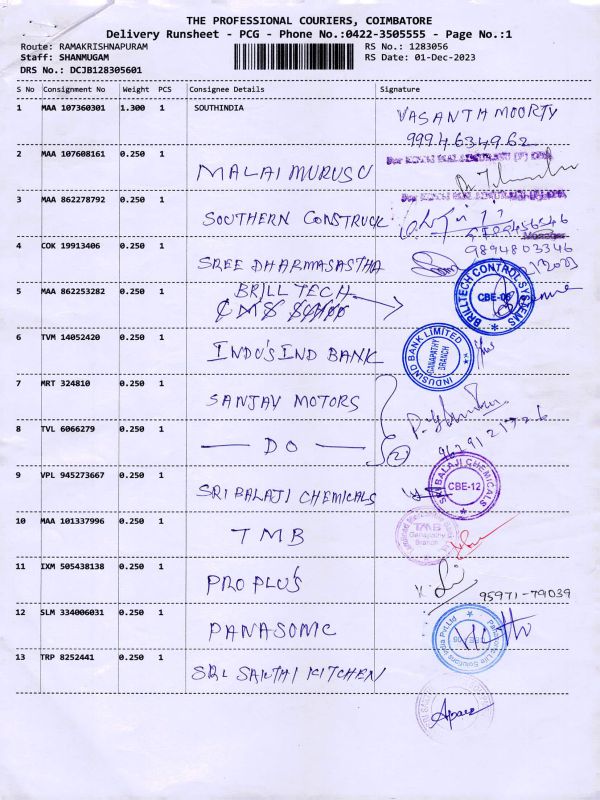 THE PROFESSIONAL COURIERS, COIMBATORE
Delivery Runsheet - PCG - Phone No.:0422-3505555 - Page No.:1
Route: RAMAKRISHNAPURAM
Staff: SHANMUGAM
DRS No.: DCJB128305601
RS No.: 1283056
RS Date: 01-Dec-2023
S No Consignment No Weight PCS Consignee Details Signature
1 MAA 107360301 1.300 1 SOUTHINDIA
VASANTH MOORTY
9994634962
2 MAA 107608161 0.250 1
MALAI MURUSU
3 MAA 862278792 0.250 1
SOUTHERN CONSTRUCK
4 COK 19913406 0.250 1
SREE DHARMASASTHA
9894803346
5 MAA 862253282 0.250 1
BRILL TECH
CMS
BRILLTECH CONTROL SYSTEMS
CBE-06
6 TVM 14052420 0.250 1
INDUSIND BANK
INDUSIND BANK LIMITED
GANAPATHY
BRANCH
7 MRT 324810 0.250 1
SANJAY MOTORS
8 TVL 6066279 0.250 1
— DO —
(2)
9 VPL 945273667 0.250 1
SRI BALAJI CHEMICALS
SRI BALAJI CHEMICALS
CBE-12
10 MAA 101337996 0.250 1
TMB
TMB
Ganapathy
Branch
11 IXM 505438138 0.250 1
PRO PLU'S
95971-79039
12 SLM 334006031 0.250 1
PANASONIC
Panasonic Life Solutions India Pvt.Ltd
13 TRP 8252441 0.250 1
SRI SANTHI KITCHEN